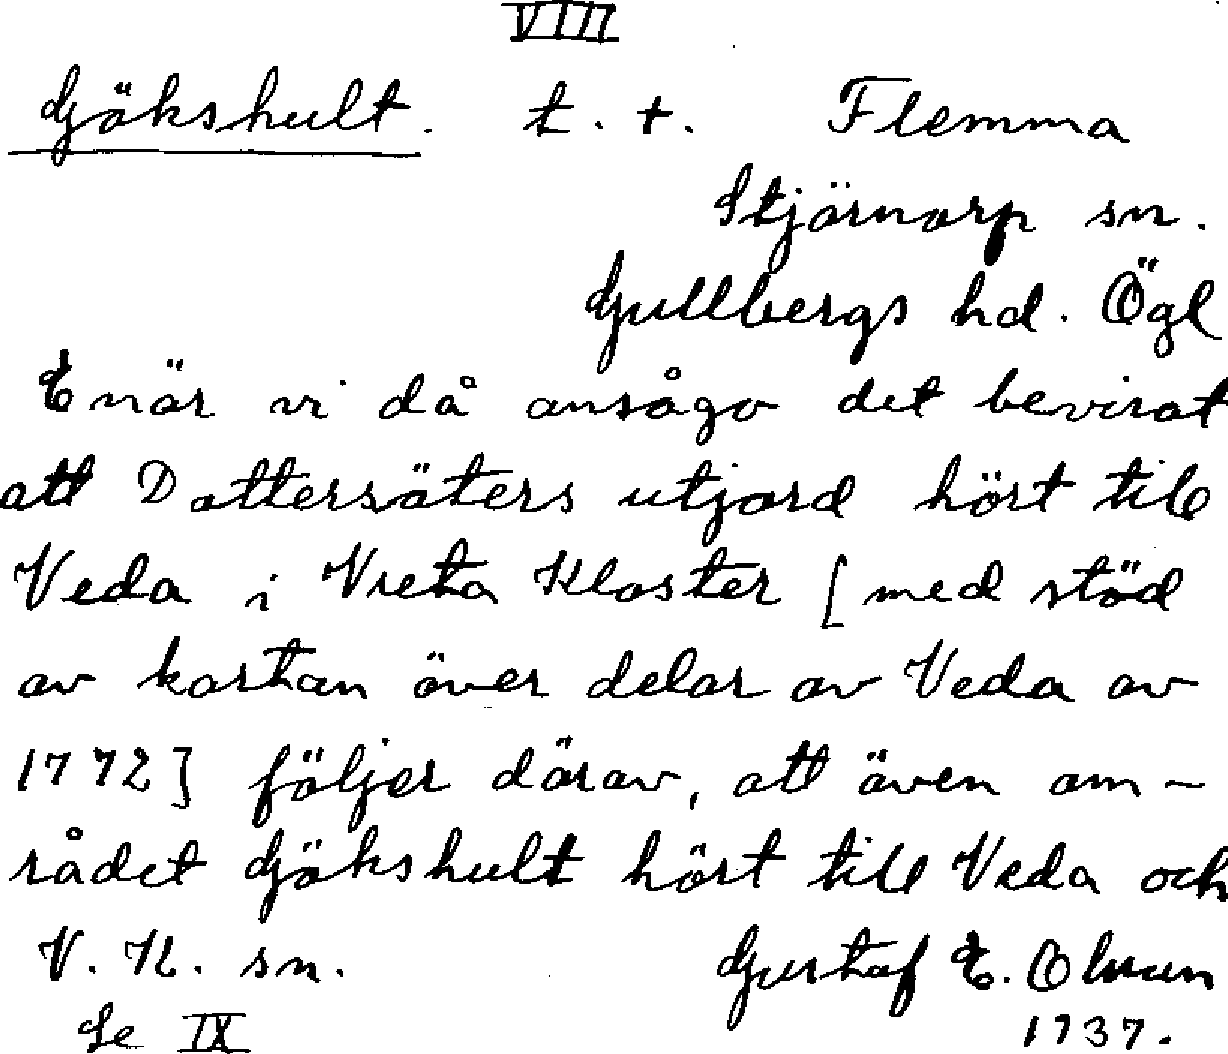 VIII
Gökshult. t. +. Flemma
Stjärnorp sn.
Gullbergs hd. Ögl
Enär vi då ansågo det bevisat
att Dottersäters utjord hört till
Veda i Vreta Kloster [med stöd
av kartan över delar av Veda av
1772] följer därav, att även om-
rådet Gökshult hört till Veda och
V. K. sn. Gustaf E. Olsson
Se IX 1737.